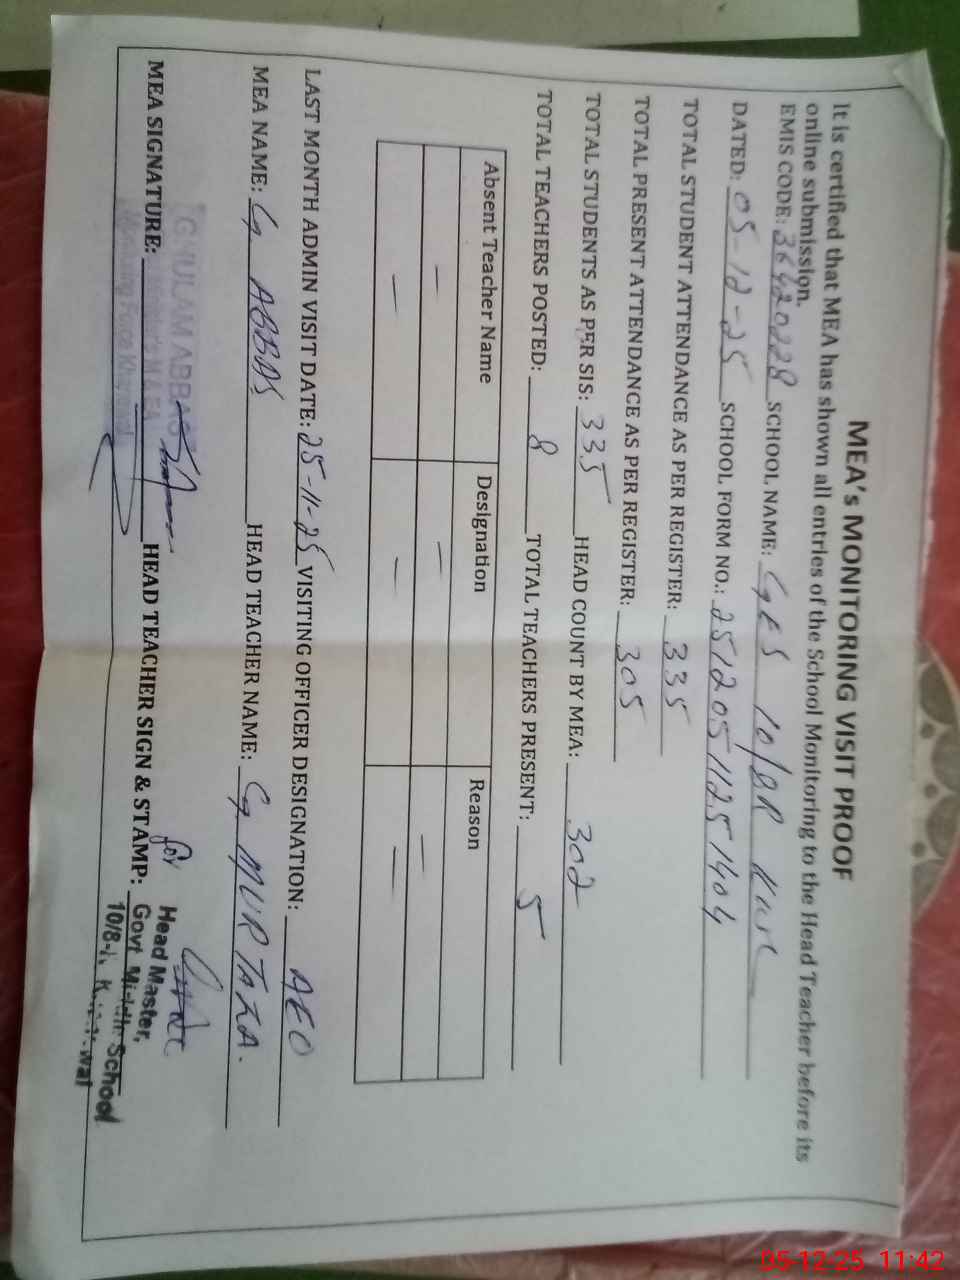 MEA's MONITORING VISIT PROOF
It is certified that MEA has shown all entries of the School Monitoring to the Head Teacher before its
online submission.
EMIS CODE: 36420228 SCHOOL NAME: GES 10/8R
DATED: 05-12-25 SCHOOL FORM NO.: 25120511251404
TOTAL STUDENT ATTENDANCE AS PER REGISTER: 335
TOTAL PRESENT ATTENDANCE AS PER REGISTER: 305
TOTAL STUDENTS AS PER SIS: 335 HEAD COUNT BY MEA: 302
TOTAL TEACHERS POSTED: 8 TOTAL TEACHERS PRESENT: 5
Absent Teacher Name Designation Reason
— — —
— — —
LAST MONTH ADMIN VISIT DATE: 25-11-25 VISITING OFFICER DESIGNATION: AEO
MEA NAME: G ABBAS HEAD TEACHER NAME: G MURTAZA.
MEA SIGNATURE: HEAD TEACHER SIGN & STAMP:
GHULAM ABBAS
for
Head Master,
Govt. Middle School
10/8-R
05-12-25 11:42